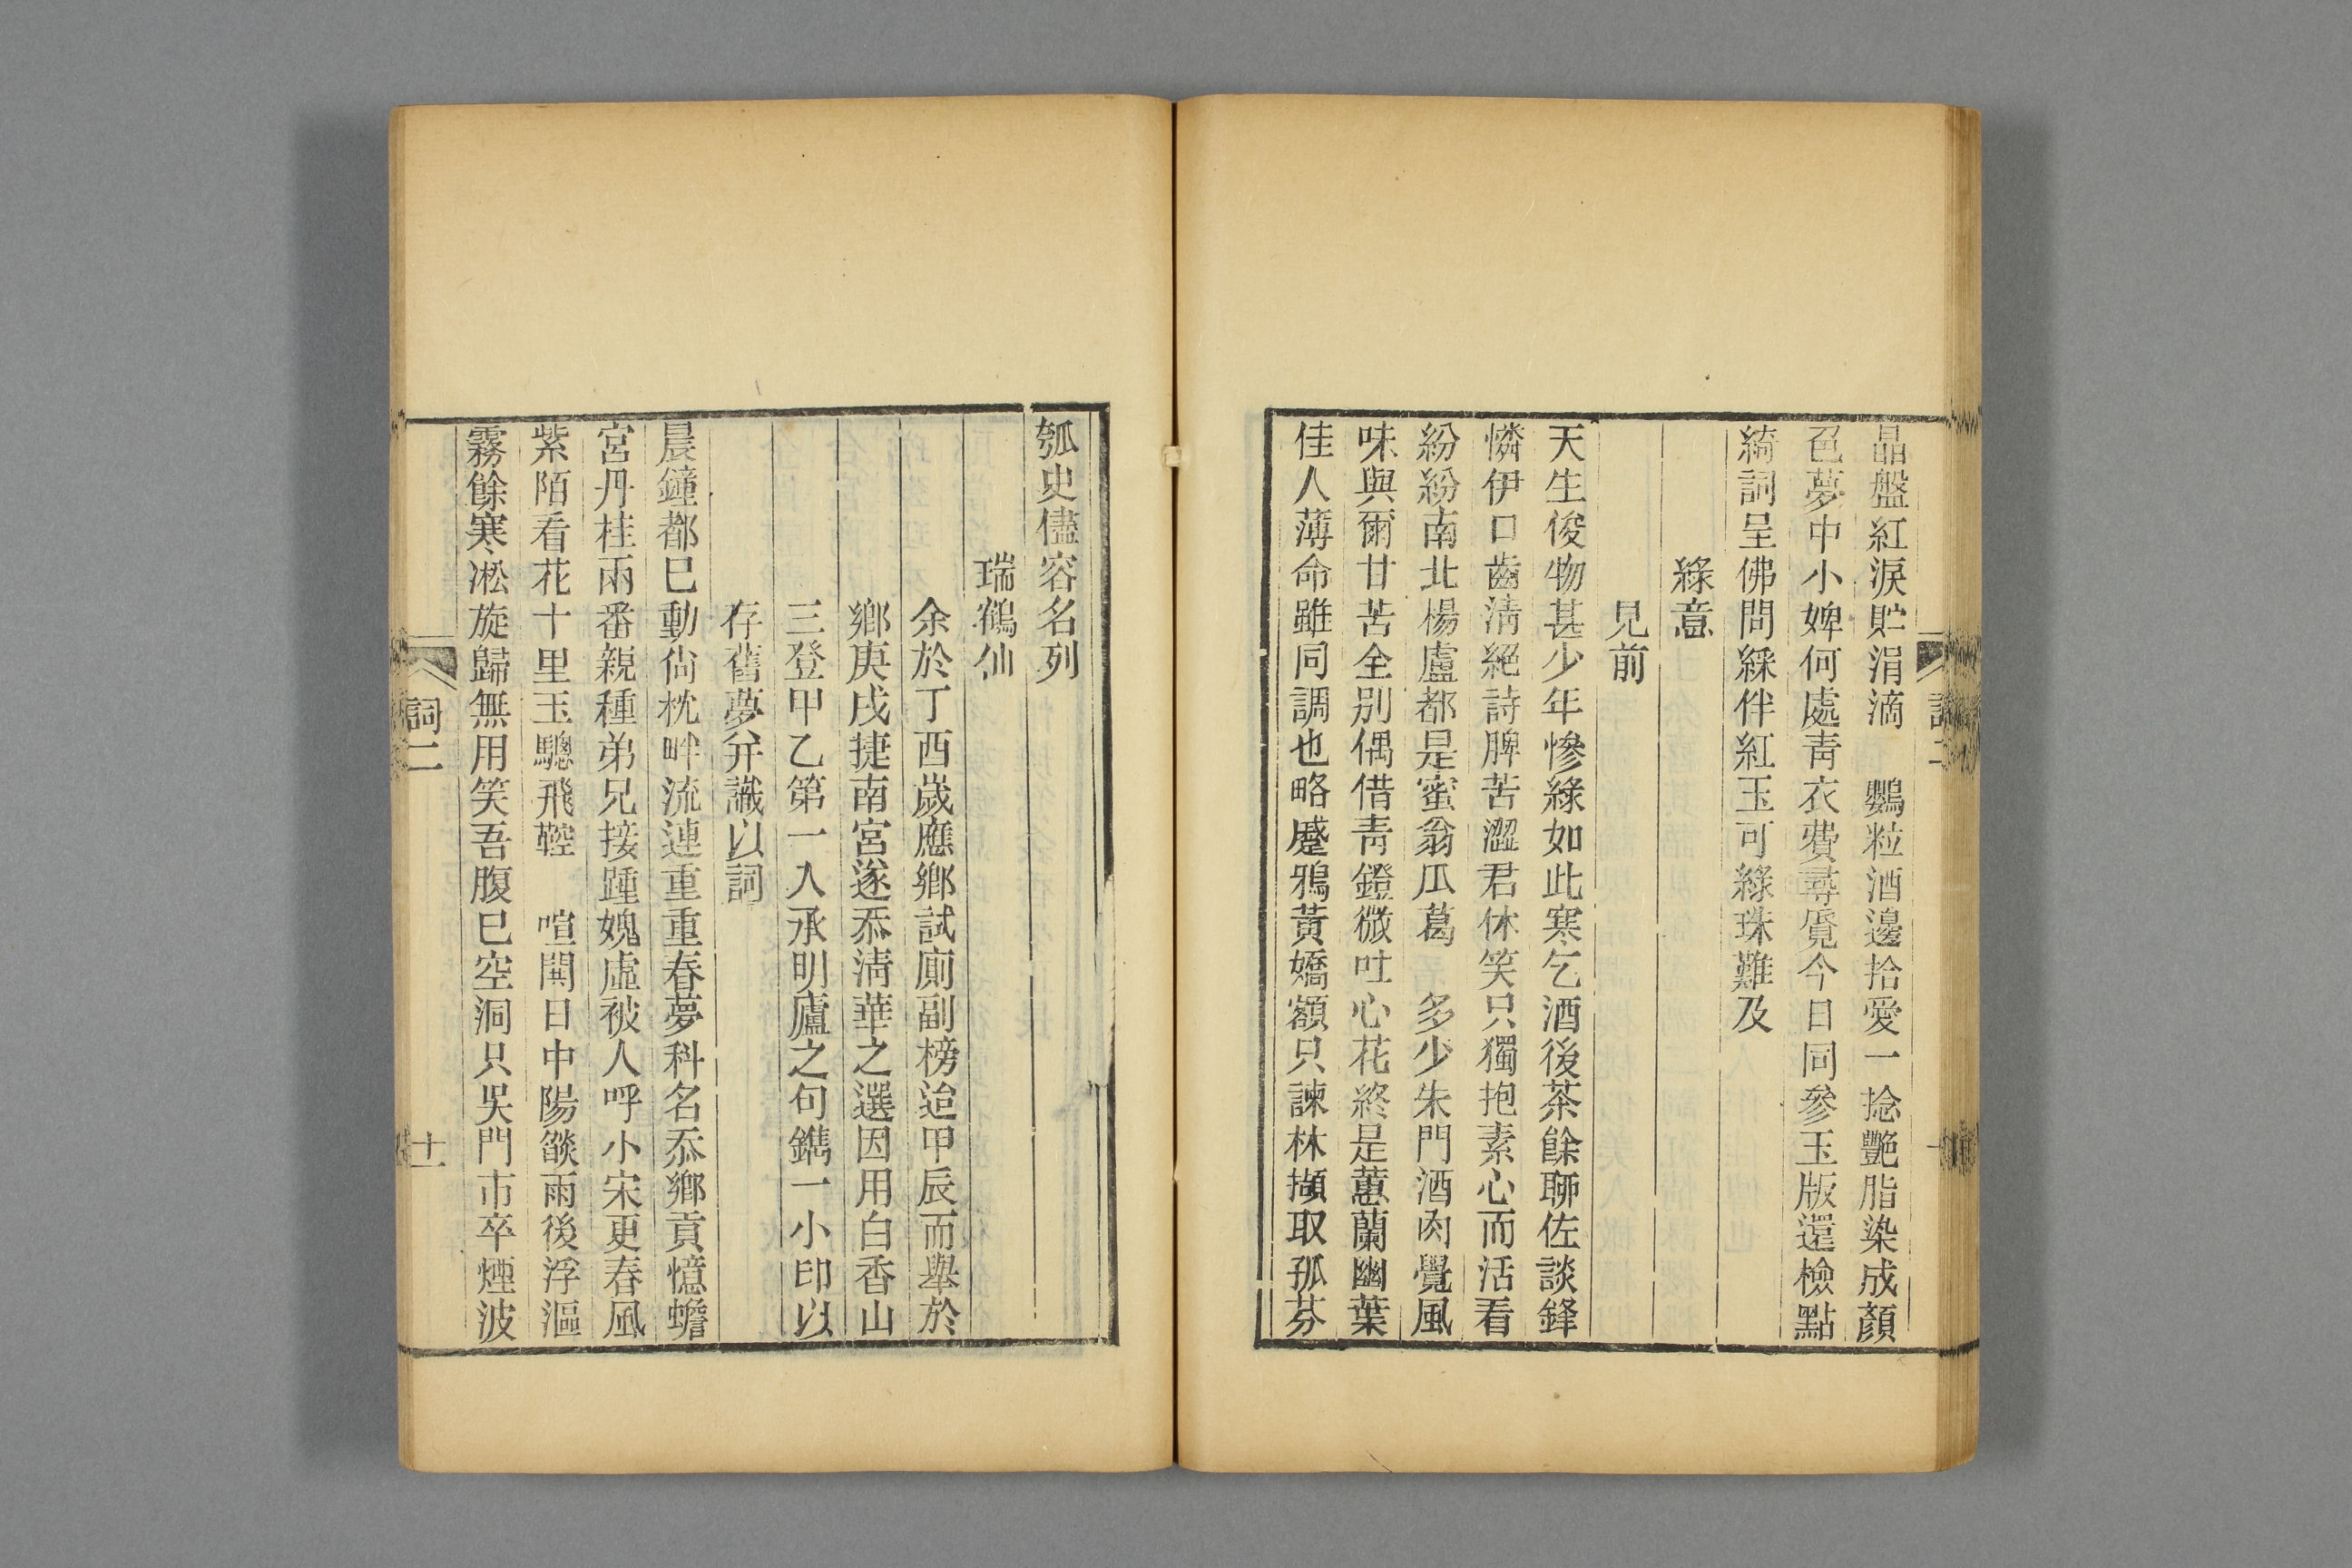 晶盤紅淚貯涓滴　鸚粒酒邊拾愛一捻艷脂染成顏
色夢中小婢何處靑衣費尋覓今日同參玉版還檢點
綺詞呈佛問綵伴紅玉可綠珠難及
綠意
見前
天生俊物甚少年慘綠如此寒乞酒後茶餘聊佐談鋒
憐伊口齒淸絕詩脾苦澀君休笑只獨抱素心而活看
紛紛南北楊盧都是蜜翁瓜葛　多少朱門酒肉覺風
味與爾甘苦全別偶借靑鐙微吐心花終是蕙蘭幽葉
佳人薄命雖同調也略蹙鴉黃嬌額只諫林擷取孤芬
瓠史儘容名列
瑞鶴仙
余於丁酉歲應鄉試廁副榜迨甲辰而舉於
鄉庚戌捷南宮遂忝淸華之選因用白香山
三登甲乙第一入承明廬之句鐫一小印以
存舊夢并識以詞
晨鐘都巳動尙枕畔流連重重春夢科名忝鄉貢憶蟾
宮丹桂兩番親種弟兄接踵媿虛被人呼小宋更春風
紫陌看花十里玉驄飛鞚　喧鬨日中陽燄雨後浮漚
霧餘寒凇旋歸無用笑吾腹巳空洞只吳門市卒煙波
詞二
十一